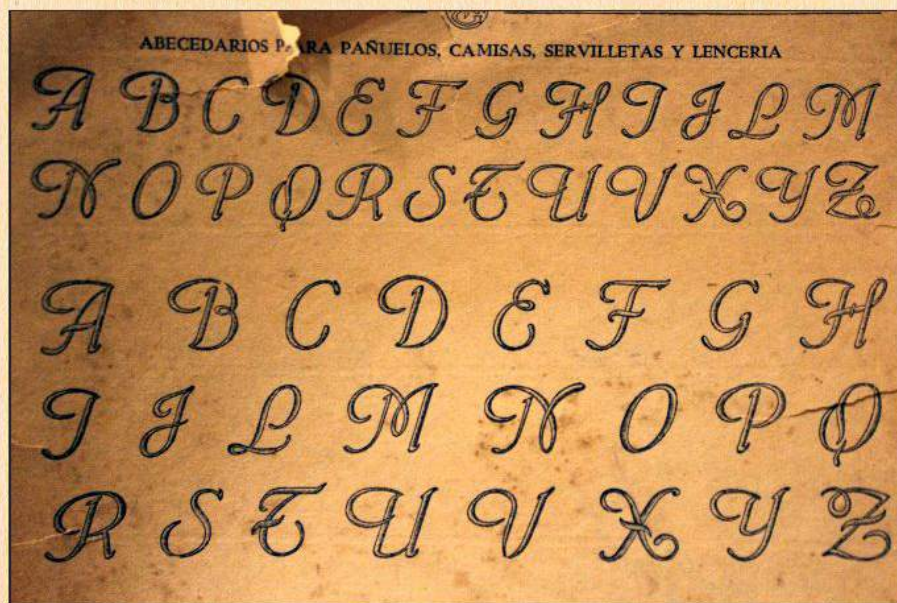 ABECEDARIOS PARA PAÑUELOS, CAMISAS, SERVILLETAS Y LENCERIA
A B C D E F G H I J L M
N O P Q R S T U V X Y Z
A B C D E F G H
I J L M N O P Q
R S T U V X Y Z